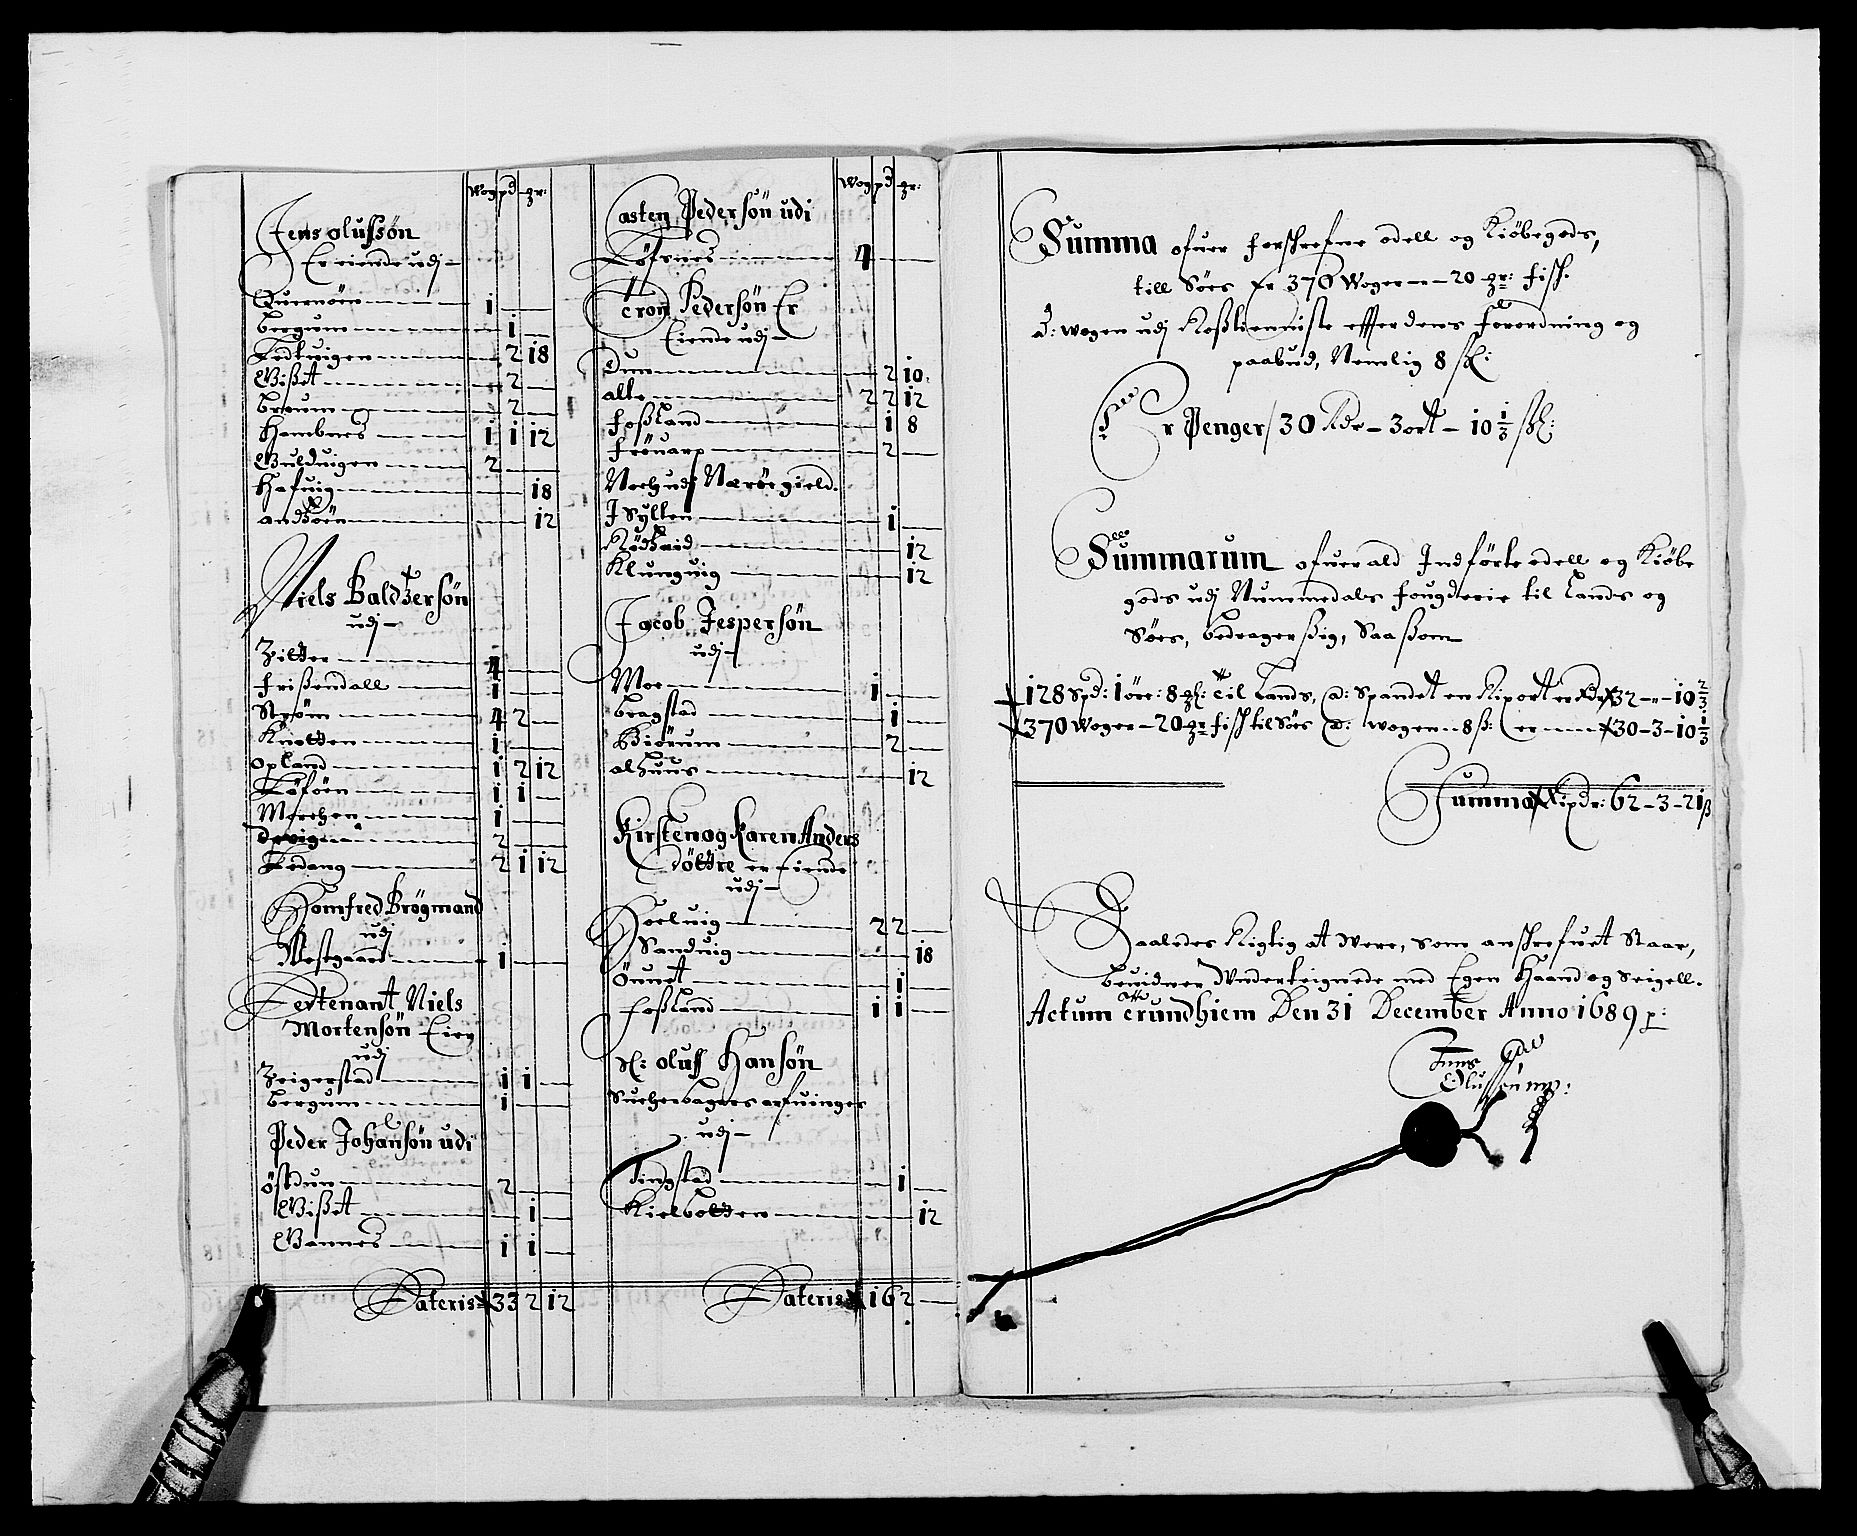 Wog pd gr:
Jens olufsøn
Er eiende udj
Quernøen 1
bergum 1
Tedtuigen 2 18
Wißet 2
breum 2
Hambnes 1 1 12
Guldvigen 2
Hafuig 18
andtzøen 12
Niels Baldtzersøn
udj
Zitter 4
frißendall 1
Strøm 4 2
Knotten 1
opland 1 2 12
Løføen 1 1
Merchen 1
Devigen 2
Ledang 2 1 12
Homfred Brøgmand
udj
Westgaard 1
Levtenant Niels
Mortensøn Eien
udj
Zeigerstad 1 1
bergum 1
Peder Johansøn udi
østdun 2
Wißet 1
Gannes 1 1
Lateris 33 2 12
Wog pd gr:
Casten Pedersøn udi
Løfsnes 4
Tron Pedersøn Er
Eiende udj
Dun 2 10
alte 2 2 12
foßland 1 8
frøuarp 2
Noch udj Nærøe gield
J Sylten 1
Rødseid 12
Klunguig 12
Jacob Jespersøn
udj
Moe 1
bragstad 1
Biørum 2
alhuus 12
Kirsten og Karen Anders
døttre er Eiende
udj
Hoeluig 2 2
Sanduig 18
Ønnet 1
foßland 1 1
Sl: oluff Hansøn
Sucherbagers arfuinger
udj
Tingstad 1
Kielbotten 12
Lateris 16 2
Summa ofuer forschrefne odell og Kiøbegods,
till Søes er 370 Woger - 20 gr: fisk.
d: wogen udj Roßtienniste efter dens forordning og
paabud, Nemlig 8 sk:
Er Penger / 30 Rdr - 3 ort - 10 1/3 sk:
Summarum ofuer ald Indførte odell og Kiøbe
gods udj Nummedals fougderie til Lands og
Søes, bedrager sig, Saasom
128 Spd: 1 øre: 8 gl: til Lands, a: Spandet en Rixort er Rdr 32 - " - 10 2/3
370 Woger - 20 gr fisk til Søes a: wogen - 8 s: er 30 - 3 - 10 1/3
Summa Rixdr: 62 - 3 - 21 s
Saaledes Rigtig at were, som anschrefuet Staar,
beuidner Vnderteignede med Egen Haand og Seigell.
Actum Trundhiem Den 31 December Anno 1689 p:
Jens
Olufsøn mp: